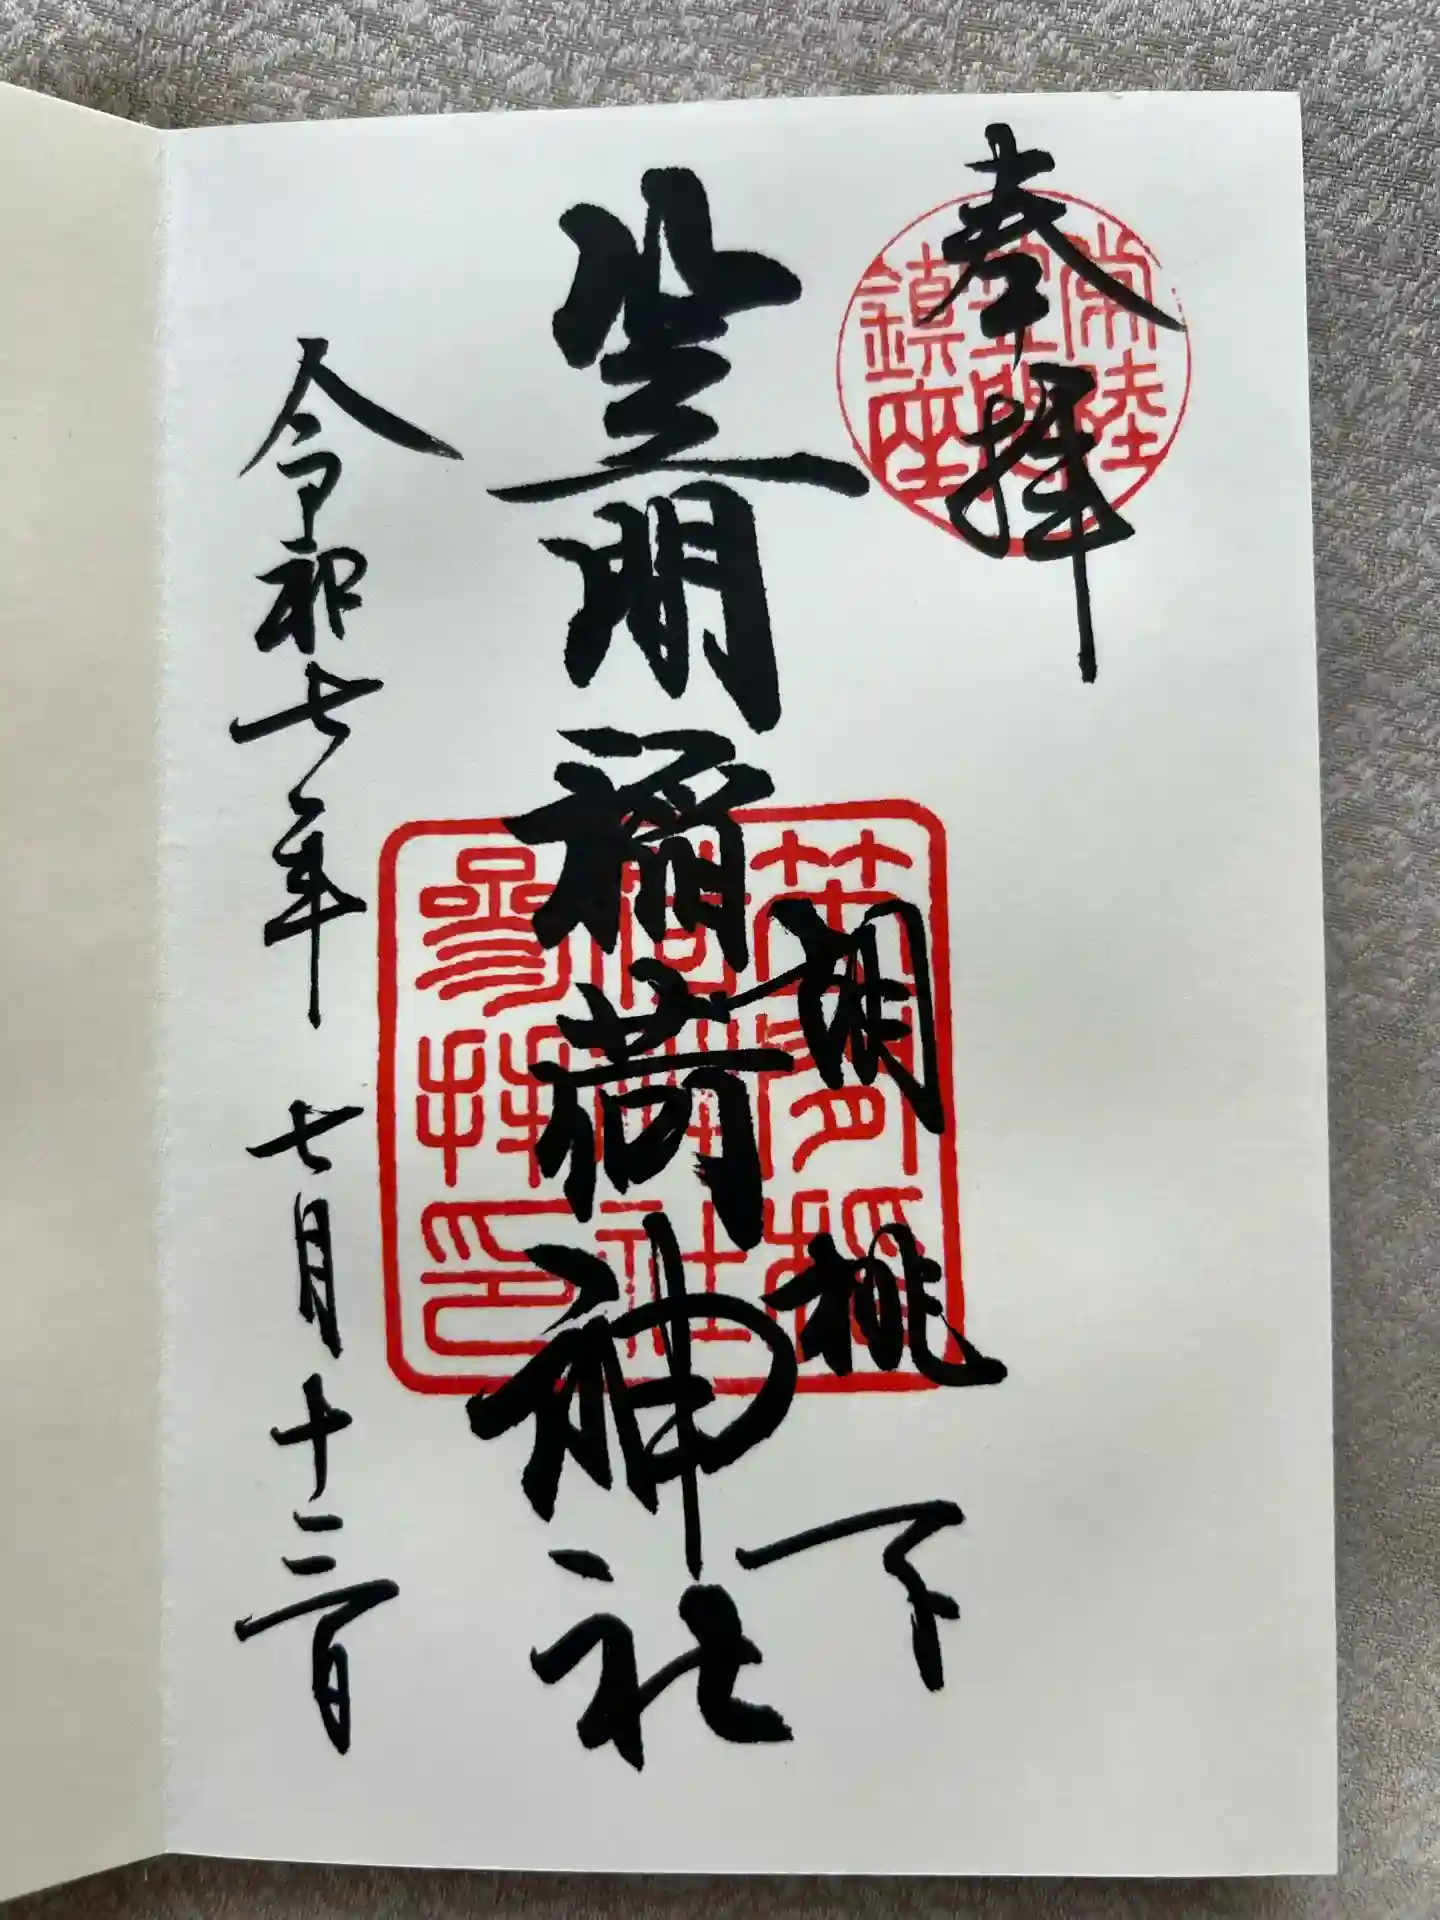 奉拝
常陸
笠間
鎮座
胡桃下
笠間稲荷神社
笠間稲
荷神社
参拝印
令和七年 七月十三日